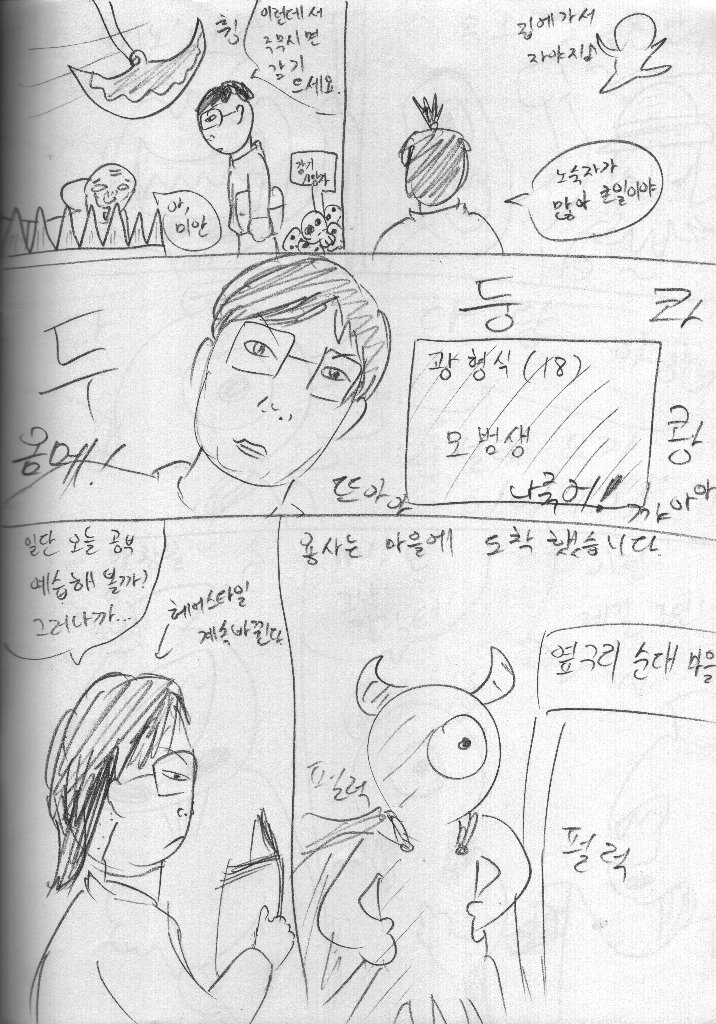 휭
이런데서
주무시면
감기
드세요.
아,
미안
감기
집에가서
자야지
노숙자가
많아 큰일이야
두
둥
콰
쾅
광형식 (18)
모범생
나죽어!
몸메!
뜨아아
까아아
일단 오늘 공부
예습해 볼까?
그러니까...
헤어스타일
계속바뀐다
용사는 마을에 도착했습니다.
옆구리 순대 마을
펄럭
펄럭